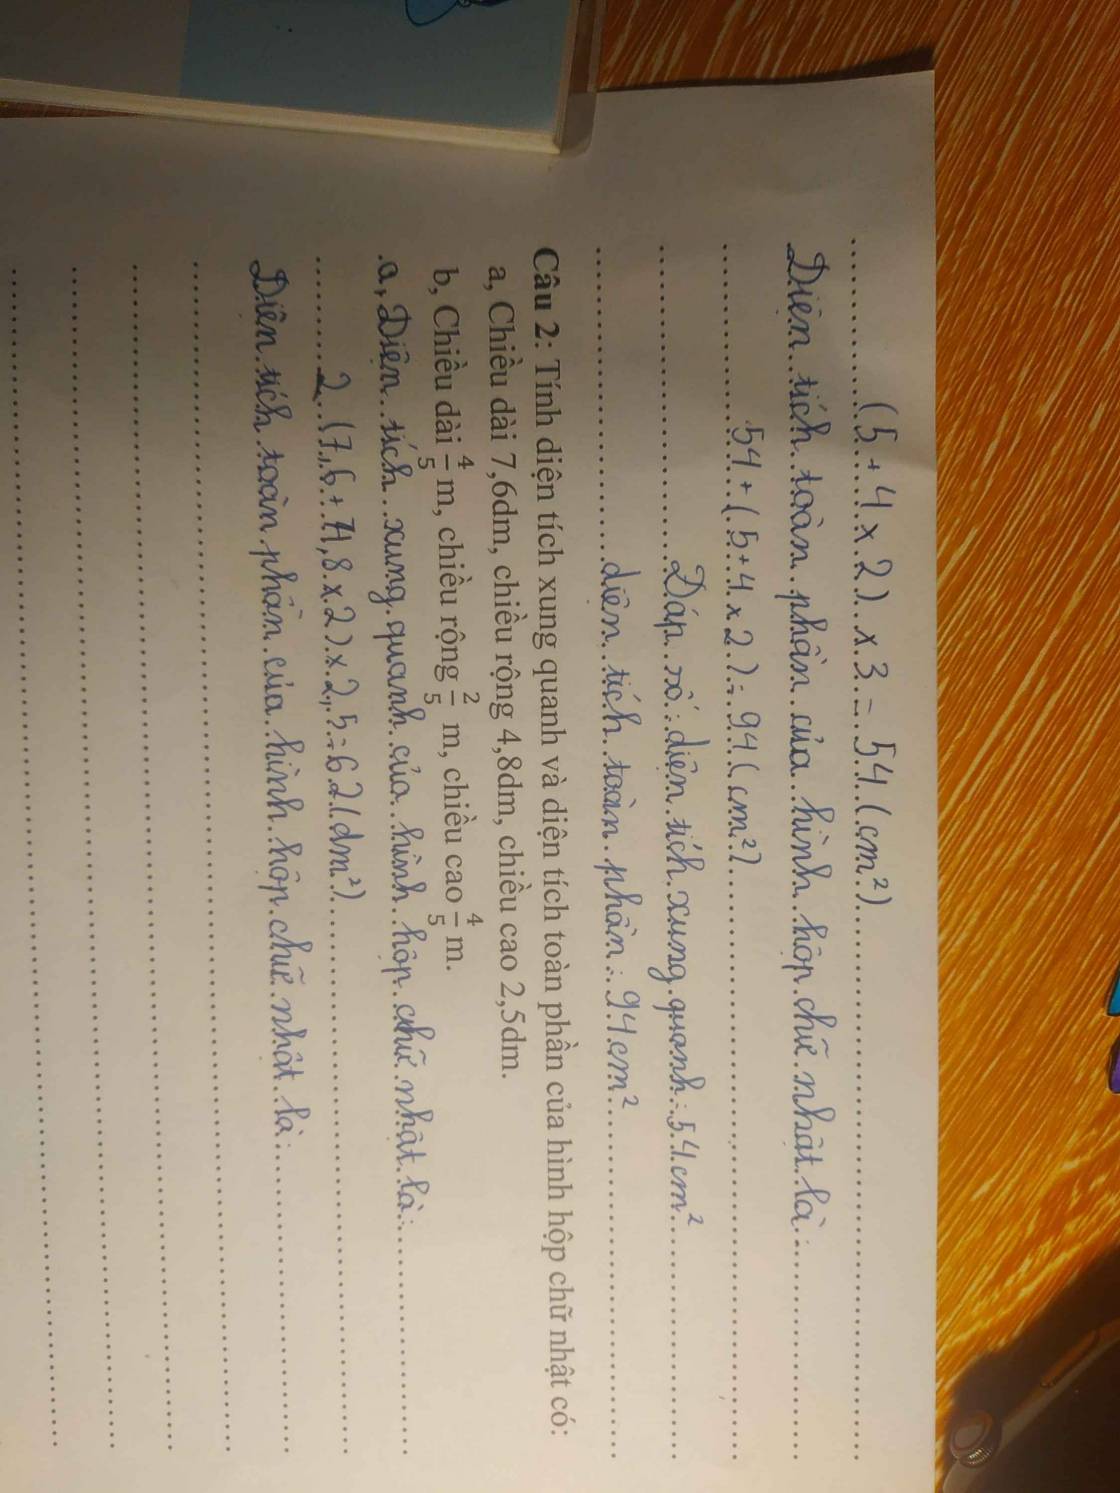 (5+4 x 2) x 3 = 54 (cm²)
Diện tích toàn phần của hình hộp chữ nhật là:
54 + (5+4 x 2) = 94 (cm²)
Đáp số: diện tích xung quanh: 54 cm²
diện tích toàn phần: 94 cm²
Câu 2: Tính diện tích xung quanh và diện tích toàn phần của hình hộp chữ nhật có:
a, Chiều dài 7,6dm, chiều rộng 4,8dm, chiều cao 2,5dm.
b, Chiều dài 4/5 m, chiều rộng 2/5 m, chiều cao 4/5 m.
a, Diện tích xung quanh của hình hộp chữ nhật là:
(7,6 + 4,8 x 2) x 2,5 = 62 (dm²)
Diện tích toàn phần của hình hộp chữ nhật là: